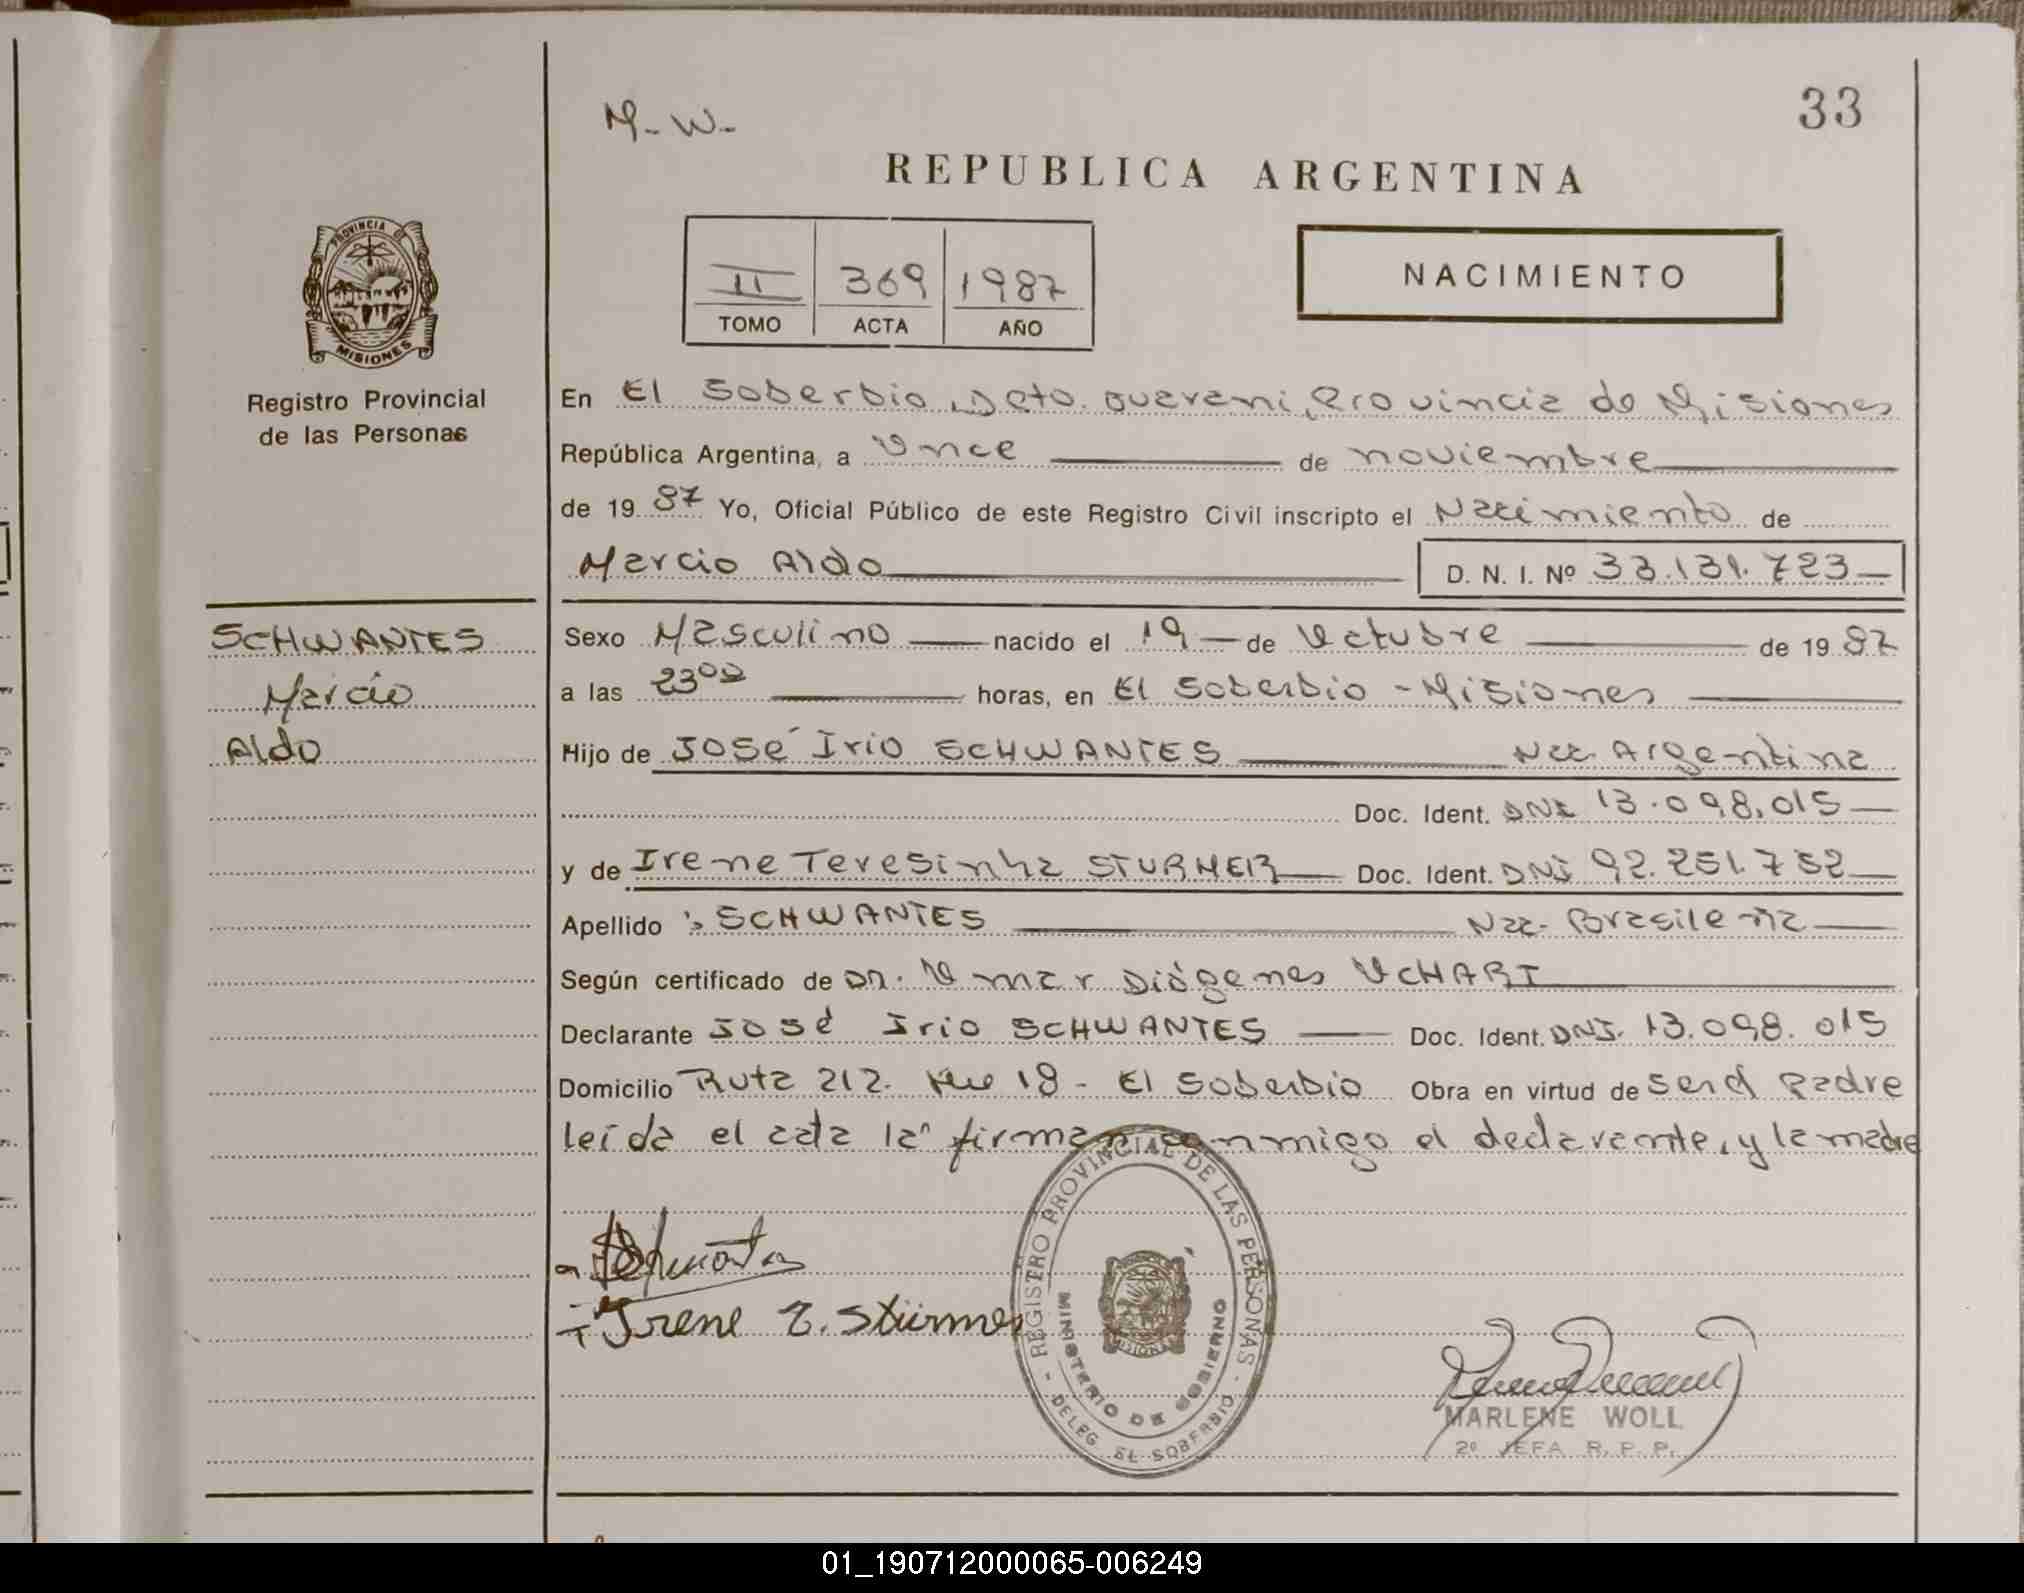 M-W-
33
REPUBLICA ARGENTINA
II 369 1987
TOMO ACTA AÑO
NACIMIENTO
PROVINCIA D
MISIONES
Registro Provincial
de las Personas
En El Soberbio, Dpto. Guarani, Provincia de Misiones
República Argentina, a Once de noviembre
de 1987 Yo, Oficial Público de este Registro Civil inscripto el Nacimiento de
Marcio Aldo D. N. I. Nº 33.131.723
SCHWANTES
Marcio
Aldo
Sexo Masculino nacido el 19 de Octubre de 1987
a las 23 horas, en El Soberbio - Misiones
Hijo de José Irio SCHWANTES Nac. Argentina
Doc. Ident. DNI 13.098.015
y de Irene Teresinha STURMER Doc. Ident. DNI 92.251.752
Apellido SCHWANTES Nac. Brasileña
Según certificado de Dr. Omar Diógenes OCHART
Declarante José Irio SCHWANTES Doc. Ident. DNI. 13.098.015
Domicilio Ruta 212. Km 18 - El Soberbio Obra en virtud de ser el Padre
leída el acta la firman conmigo el declarante, y la madre
Schwantes
Irene T. Stürmer
REGISTRO PROVINCIAL DE LAS PERSONAS
MINISTERIO DE GOBIERNO
DELEG. EL SOBERBIO
MISIONES
MARLENE WOLL
2º JEFA R. P. P.
01_190712000065-006249